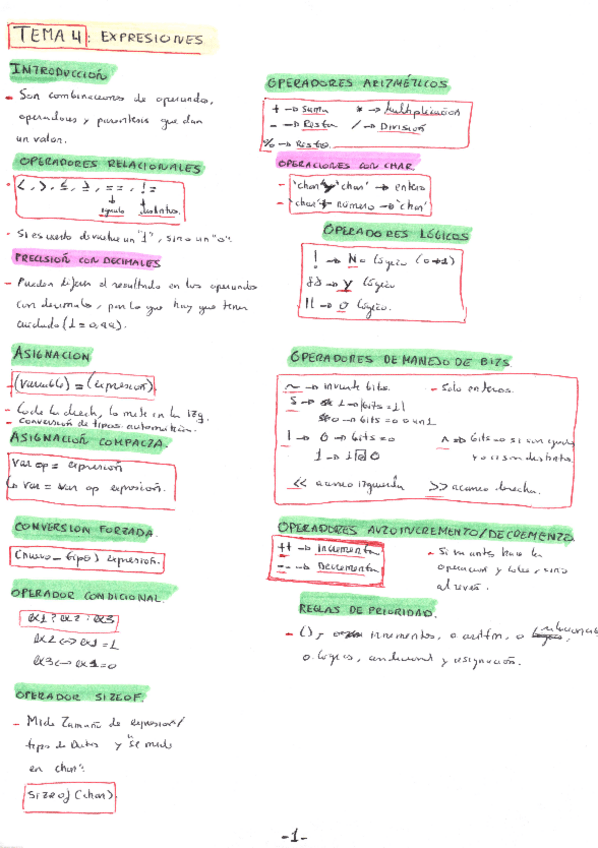 TEMA 4: EXPRESIONES
INTRODUCCIÓN
- Son combinaciones de operandos,
operadores y paréntesis que dan
un valor.
OPERADORES RELACIONALES
<, >, ≤, ≥, ==, !=
igualo distintos.
- Si es cierto devuelve un "1", sino un "0".
PRECISIÓN CON DECIMALES
- Pueden el resultado en los operandos
con decimales, por lo que hay que tener
cuidado (1 = 0,99).
ASIGNACION
- (variable) = (expresión)
- la mete en la izq.
- conversión de tipos automática.
ASIGNACIÓN COMPACTA.
var op = expresión
var = var op expresión.
CONVERSION FORZADA.
(nuevo_tipo) expresión.
OPERADOR CONDICIONAL.
ex1 ? ex2 : ex3
ex2 <-> ex1 = 1
ex3 <-> ex1 = 0
OPERADOR SIZEOF.
- Mide Tamaño de expresión/
tipo de Datos y "se mide
en char".
sizeof (char)
OPERADORES ARITMÉTICOS
+ -> suma * -> Multiplicación
- -> Resta / -> División
% -> Resto.
OPERACIONES CON CHAR.
- 'char' y 'char' -> entero
- 'char' + número -> 'char'
OPERADORES LÓGICOS
! -> No lógico (0->1)
&& -> y lógico
|| -> o lógico.
OPERADORES DE MANEJO DE BITS.
~ -> invierte bits. - Solo enteros.
1 -> bits = 1
0 -> bits = 0
| -> 0 -> bits = 0 ^ -> bits = 0 si son iguales
1 -> y 1 si son distintos
<< avance izquierda >> avance derecha.
OPERADORES AUTOINCREMENTO/DECREMENTO
++ -> incrementa
-- -> Decrementa
- Si va antes hace la
operación y , sino
al revés.
REGLAS DE PRIORIDAD.
- (), incrementos, o aritm, o relacional
o lógicos, condicional y asignación.
-1-